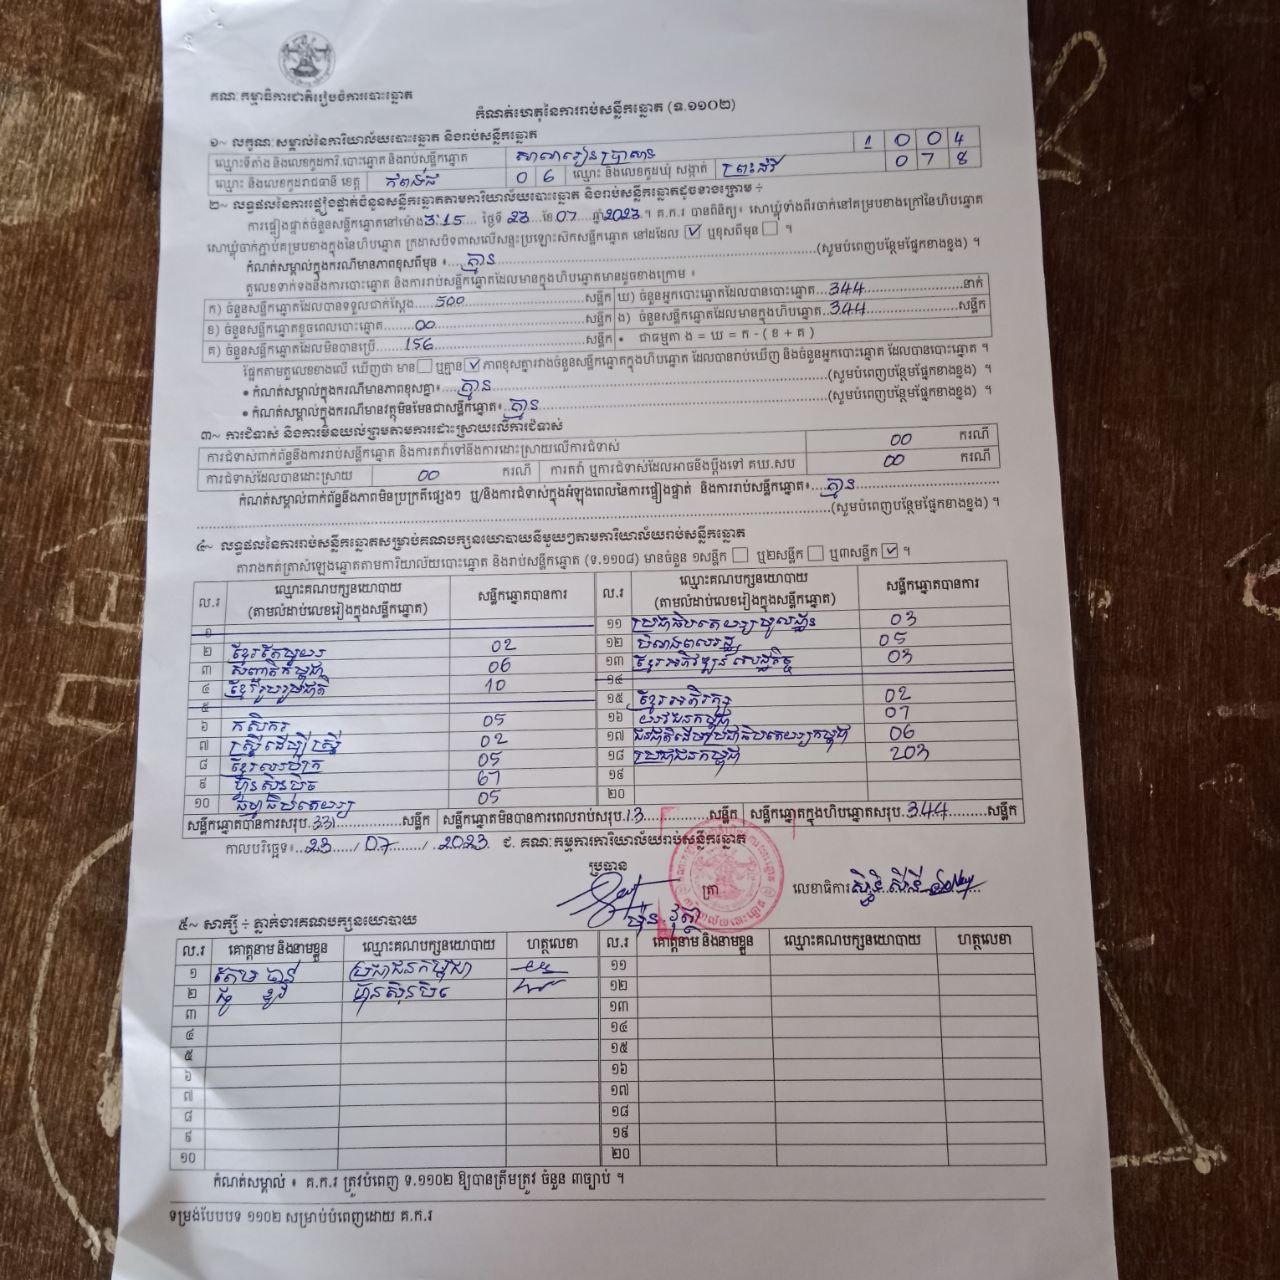 គណៈកម្មាធិការជាតិរៀបចំការបោះឆ្នោត
កំណត់ហេតុនៃការរាប់សន្លឹកឆ្នោត (ទ.១១០២)
១~ លក្ខណៈសម្គាល់នៃការិយាល័យបោះឆ្នោត និងរាប់សន្លឹកឆ្នោត
ឈ្មោះទីតាំង និងលេខកូដការិ.បោះឆ្នោតនិងរាប់សន្លឹកឆ្នោត សាលារៀនប្រាសាទ 1 0 0 4
ឈ្មោះ និងលេខកូដរាជធានី ខេត្ត កំពង់ធំ 0 6 ឈ្មោះ និងលេខកូដឃុំ សង្កាត់ 0 7 8
២~ លទ្ធផលនៃការផ្ទៀងផ្ទាត់ចំនួនសន្លឹកឆ្នោតតាមការិយាល័យបោះឆ្នោត និងរាប់សន្លឹកឆ្នោតដូចខាងក្រោម ÷
ការផ្ទៀងផ្ទាត់ចំនួនសន្លឹកឆ្នោតនៅម៉ោង 3:15 ថ្ងៃទី 23 ខែ 07 ឆ្នាំ 2023 ។ គ.ក.រ បានពិនិត្យ៖ សោឃ្មុំទាំងពីរចាក់នៅគម្របខាងក្រៅនៃហិបឆ្នោត
សោឃ្មុំចាក់ភ្ជាប់គម្របខាងក្នុងនៃហិបឆ្នោត ក្រដាសបិទពាសលើសន្ទះប្រឡោះស៊កសន្លឹកឆ្នោត នៅដដែល ☑ ឬខុសពីមុន ☐ ។
កំណត់សម្គាល់ក្នុងករណីមានភាពខុសពីមុន ៖ គ្មាន (សូមបំពេញបន្ថែមផ្នែកខាងខ្នង) ។
តួលេខទាក់ទងនឹងការបោះឆ្នោត និងការរាប់សន្លឹកឆ្នោតដែលមានក្នុងហិបឆ្នោតមានដូចខាងក្រោម ៖
ក) ចំនួនសន្លឹកឆ្នោតដែលបានទទួលជាក់ស្តែង 500 សន្លឹក ឃ) ចំនួនអ្នកបោះឆ្នោតដែលបានបោះឆ្នោត 344 នាក់
ខ) ចំនួនសន្លឹកឆ្នោតខូចពេលបោះឆ្នោត 00 សន្លឹក ង) ចំនួនសន្លឹកឆ្នោតដែលមានក្នុងហិបឆ្នោត 344 សន្លឹក
គ) ចំនួនសន្លឹកឆ្នោតដែលមិនបានប្រើ 156 សន្លឹក • ជាធម្មតា ង = ឃ = ក - ( ខ + គ )
ផ្អែកតាមតួលេខខាងលើ ឃើញថា មាន ☐ ឬគ្មាន ☑ ភាពខុសគ្នារវាងចំនួនសន្លឹកឆ្នោតក្នុងហិបឆ្នោត ដែលបានរាប់ឃើញ និងចំនួនអ្នកបោះឆ្នោត ដែលបានបោះឆ្នោត ។
• កំណត់សម្គាល់ក្នុងករណីមានភាពខុសគ្នា៖ គ្មាន (សូមបំពេញបន្ថែមផ្នែកខាងខ្នង) ។
• កំណត់សម្គាល់ក្នុងករណីមានវត្ថុមិនមែនជាសន្លឹកឆ្នោត៖ គ្មាន (សូមបំពេញបន្ថែមផ្នែកខាងខ្នង) ។
៣~ ការជំទាស់ និងការមិនយល់ព្រមតាមការដោះស្រាយលើការជំទាស់
ការជំទាស់ពាក់ព័ន្ធនឹងការរាប់សន្លឹកឆ្នោត និងការតវ៉ាទៅនឹងការដោះស្រាយលើការជំទាស់ 00 ករណី
ការជំទាស់ដែលបានដោះស្រាយ 00 ករណី ការតវ៉ា ឬការជំទាស់ដែលអាចនឹងប្តឹងទៅ គឃ.សប 00 ករណី
កំណត់សម្គាល់ពាក់ព័ន្ធនឹងភាពមិនប្រក្រតីផ្សេងៗ ឬ/និងការជំទាស់ក្នុងអំឡុងពេលនៃការផ្ទៀងផ្ទាត់ និងការរាប់សន្លឹកឆ្នោត៖ គ្មាន
(សូមបំពេញបន្ថែមផ្នែកខាងខ្នង) ។
៤~ លទ្ធផលនៃការរាប់សន្លឹកឆ្នោតសម្រាប់គណបក្សនយោបាយនីមួយៗតាមការិយាល័យរាប់សន្លឹកឆ្នោត
តារាងកត់ត្រាសំឡេងឆ្នោតតាមការិយាល័យបោះឆ្នោត និងរាប់សន្លឹកឆ្នោត (ទ.១១០៨) មានចំនួន ១សន្លឹក ☐ ឬ២សន្លឹក ☐ ឬ៣សន្លឹក ☑ ។
ល.រ ឈ្មោះគណបក្សនយោបាយ (តាមលំដាប់លេខរៀងក្នុងសន្លឹកឆ្នោត) សន្លឹកឆ្នោតបានការ ល.រ ឈ្មោះគណបក្សនយោបាយ (តាមលំដាប់លេខរៀងក្នុងសន្លឹកឆ្នោត) សន្លឹកឆ្នោតបានការ
១ ១១ ប្រជាធិបតេយ្យមូលដ្ឋាន 03
២ ខ្មែរតែមួយ 02 ១២ បំណងពលរដ្ឋ 05
៣ សញ្ជាតិកម្ពុជា 06 ១៣ ខ្មែរអភិវឌ្ឍន៍សេដ្ឋកិច្ច 03
៤ ខ្មែររួបរួមជាតិ 10 ១៤
៥ ១៥ ខ្មែរអភិរក្ស 02
៦ កសិករ 05 ១៦ យុវជនកម្ពុជា 07
៧ ស្ត្រីដើម្បីស្ត្រី 02 ១៧ ជនជាតិដើមប្រជាធិបតេយ្យកម្ពុជា 06
៨ 05 ១៨ ប្រជាជនកម្ពុជា 203
៩ ហ៊្វុនស៊ិនប៉ិច 67 ១៩
១០ ធម្មាធិបតេយ្យ 05 ២០
សន្លឹកឆ្នោតបានការសរុប 331 សន្លឹក សន្លឹកឆ្នោតមិនបានការពេលរាប់សរុប 13 សន្លឹក សន្លឹកឆ្នោតក្នុងហិបឆ្នោតសរុប 344 សន្លឹក
កាលបរិច្ឆេទ៖ 23 / 07 / 2023 ជ. គណៈកម្មការការិយាល័យរាប់សន្លឹកឆ្នោត
ប្រធាន
ត្រា លេខាធិការ
៥~ សាក្សី ÷ ភ្នាក់ងារគណបក្សនយោបាយ
ល.រ គោត្តនាម និងនាមខ្លួន ឈ្មោះគណបក្សនយោបាយ ហត្ថលេខា ល.រ គោត្តនាម និងនាមខ្លួន ឈ្មោះគណបក្សនយោបាយ ហត្ថលេខា
១ ប្រជាជនកម្ពុជា ១១
២ ហ៊្វុនស៊ិនប៉ិច ១២
៣ ១៣
៤ ១៤
៥ ១៥
៦ ១៦
៧ ១៧
៨ ១៨
៩ ១៩
១០ ២០
កំណត់សម្គាល់ ៖ គ.ក.រ ត្រូវបំពេញ ទ.១១០២ ឱ្យបានត្រឹមត្រូវ ចំនួន ៣ច្បាប់ ។
ទម្រង់បែបបទ ១១០២ សម្រាប់បំពេញដោយ គ.ក.រ